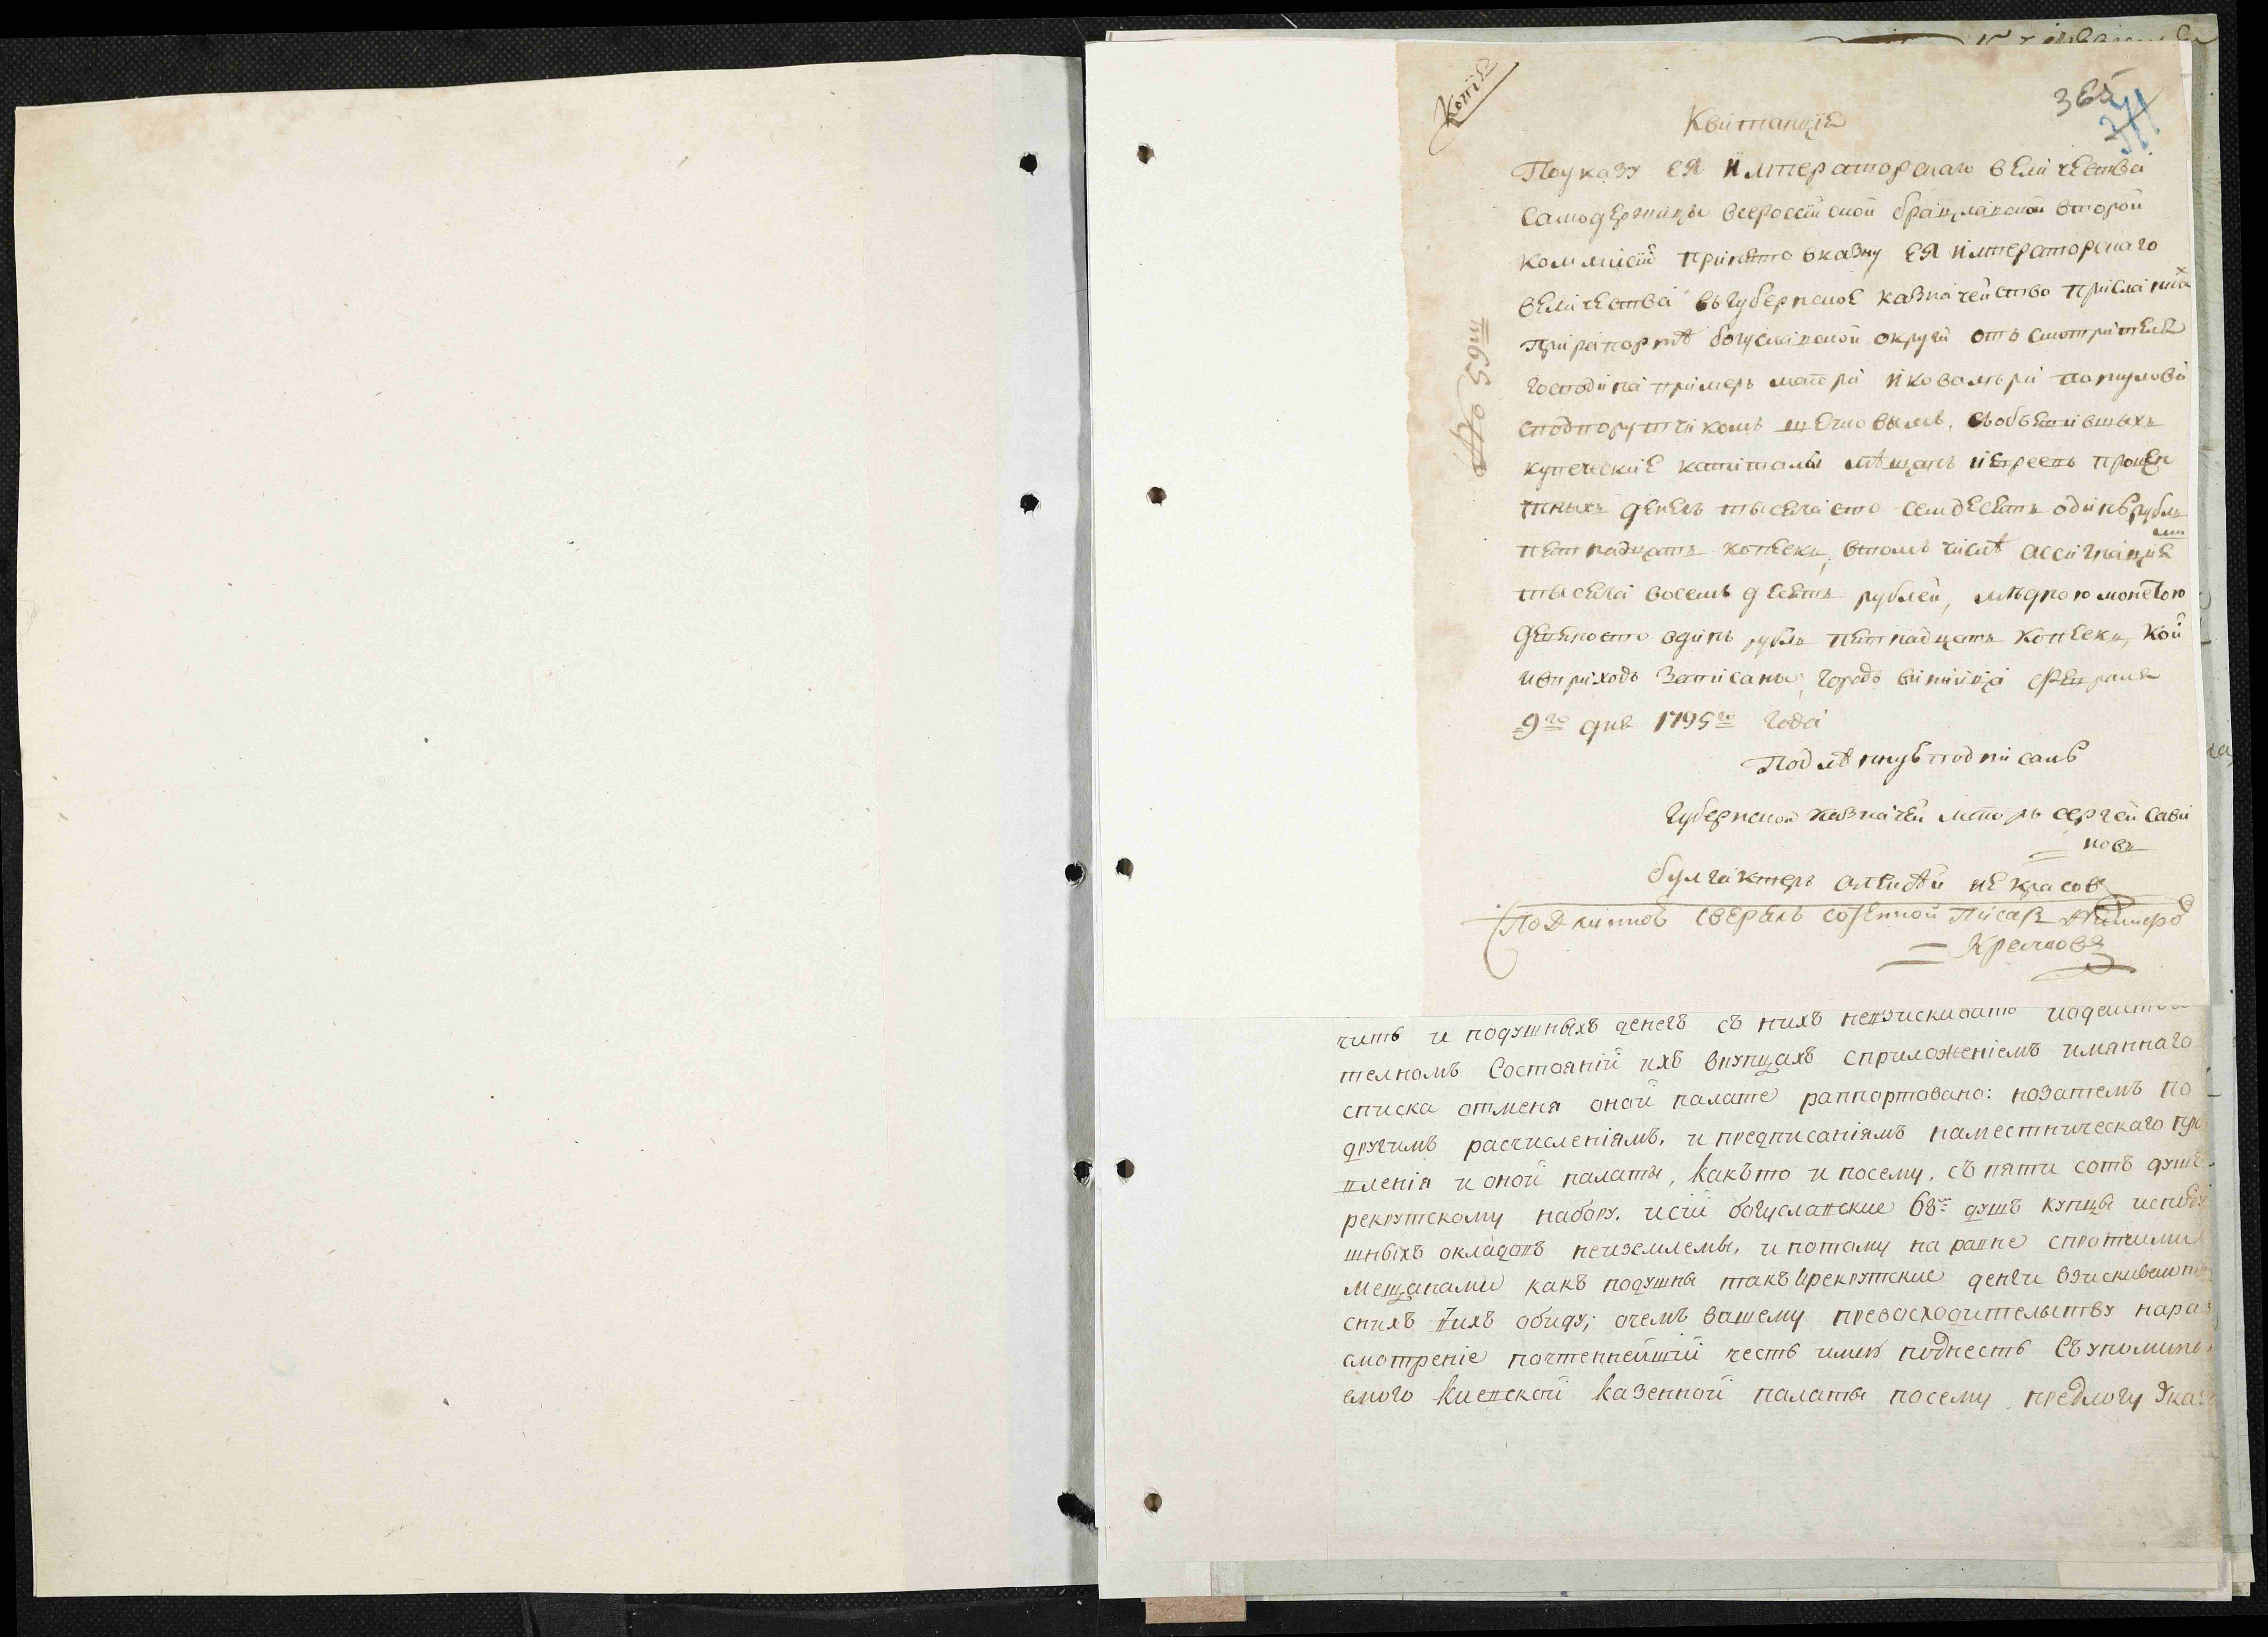 Копіѣ
365
371
Квитанціѣ
По указу ЕЯ Императорскаго величества
Самодержицы всероссійской брацлавской второй
коммисіи принято вказну ЕЯ Императорскаго
величества въ губернское казначейство присланныхъ
при рапортѣ богуславской округи отъ смотрителѣ
господина примеръ маіора и ковалѣра
сподпорутчикомъ объѣвившыхъ
купеческие капиталы мѣщанъ процен
тныхъ денегъ тысеча сто семдесетъ одинъ рубль
петнадцать копеекъ, втомъ числѣ ассигнацие
ми
тысеча восемъдесетъ рублей, мѣдною монетою
девеносто одинъ рубль петнадцать копеекъ, кои
и вприходъ записаны, городъ виница февраля
9го дня 1795го года
№ 59й
Подлѣнную подписалъ
Губернской казначей маіоръ сергей сави
новъ
булгактеръ алексѣй некрасовъ
Подлинною сверялъ писаръ
чить и подушныхъ денегъ съ нихъ невзискивать
телномъ состояніи ихъ вкупцахъ сприложеніемъ имяннаго
списка отменя оной палате раппортовано: нозатемъ по
другимъ расчисленіямъ, и предписаніямъ наместническаго пра
вленія и оной палаты, какъто и посему, съ пяти сотъ душъ
рекрутскому набору, исіи богуславские 68м душъ купцы исподу
шныхъ окладовъ неизъемлемы, и потому на равне спротчими
мещанами какъ подушны такъ ирекрутские денги взискивают
снихъ обиду; очемъ вашему превосходительству нараз
смотреніе почтеннейшій честь имею поднесть съ упомина
емого киевской казенной палаты посему предлогу указа